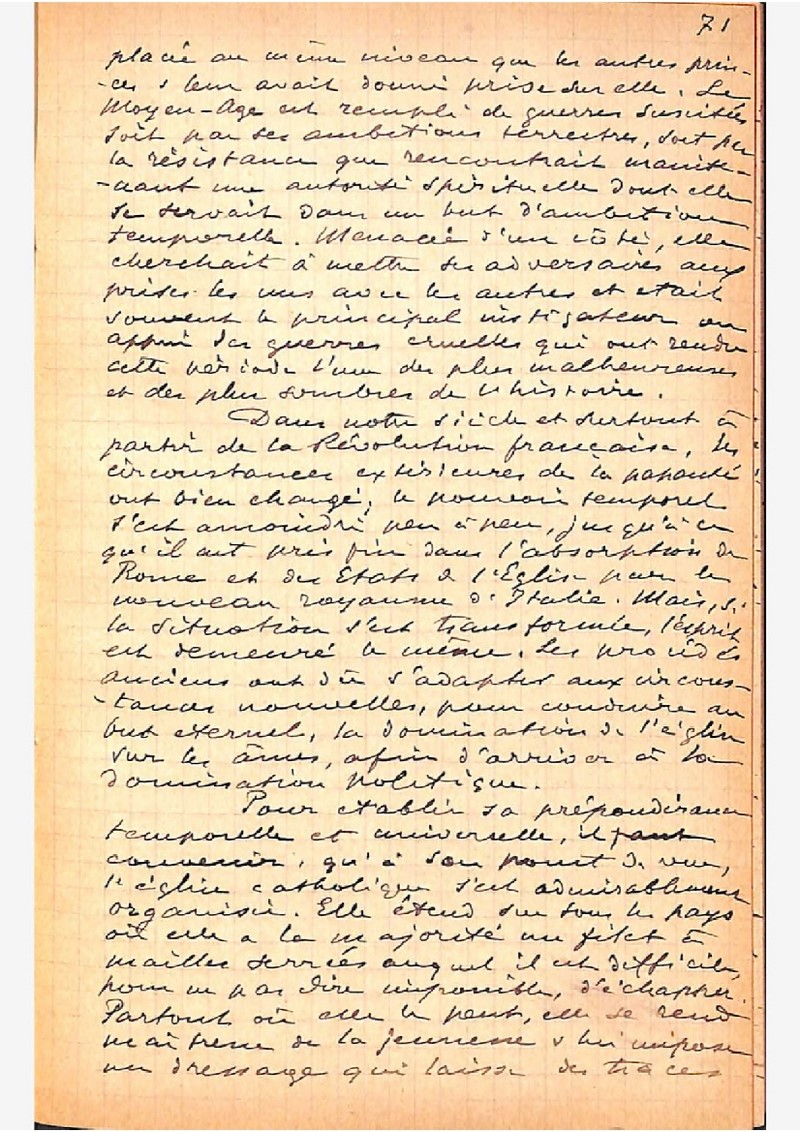 71
placée au même niveau que les autres prin-
-ces & leur avait donné prise sur elle. Le
Moyen-Age est rempli de guerres suscitées
soit par ses ambitions terrestres, soit par
la résistance que rencontrait mainte-
-nant une autorité spirituelle dont elle
se servait dans un but d'ambition
temporelle. Menacée d'un côté, elle
cherchait à mettre ses adversaires aux
prises les uns avec les autres et était
souvent le principal instigateur ou
appui des guerres cruelles qui ont rendu
cette période l'une des plus malheureuses
et des plus sombres de l'histoire.
Dans notre siècle et surtout à
partir de la Révolution française, les
circonstances extérieures de la papauté
ont bien changé; le pouvoir temporel
s'est amoindri peu à peu, jusqu'à ce
qu'il ait pris fin dans l'absorption de
Rome et des Etats de l'Eglise par le
nouveau royaume d'Italie. Mais, si
la situation s'est transformée, l'esprit
est demeuré le même. Les procédés
anciens ont dû s'adapter aux circons-
-tances nouvelles, pour conduire au
but éternel, la domination de l'église
sur les âmes, afin d'arriver à la
domination politique.
Pour établir sa prépondérance
temporelle et universelle, il faut
convenir, qu'à son point de vue,
l'église catholique s'est admirablement
organisée. Elle étend sur tous les pays
où elle a la majorité un filet à
mailles serrées auquel il est difficile,
pour ne pas dire impossible, d'échapper.
Partout où elle le peut, elle se rend
maîtresse de la jeunesse & lui impose
un dressage qui laisse des traces